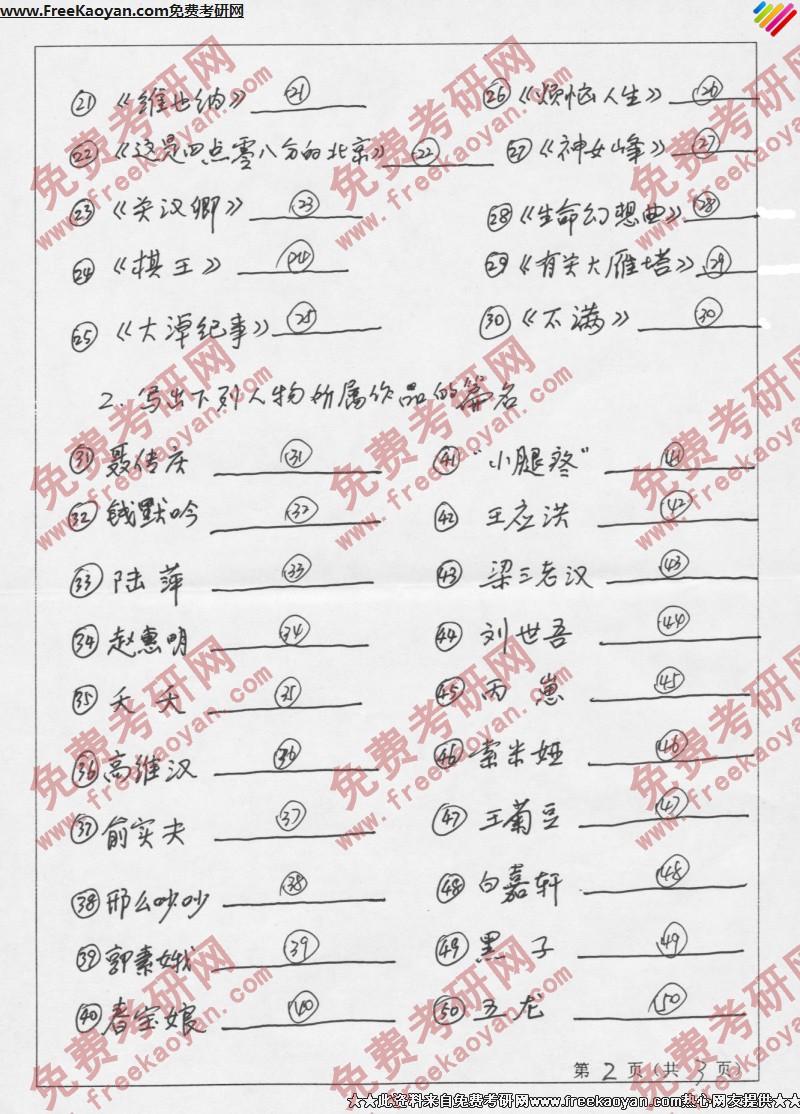 www.FreeKaoyan.com免费考研网
㉑《维也纳》 ㉑ ㉖《烦恼人生》 ㉖
㉒《这是四点零八分的北京》 ㉒ ㉗《神女峰》 ㉗
㉓《关汉卿》 ㉓ ㉘《生命幻想曲》 ㉘
㉔《棋王》 ㉔ ㉙《有关大雁塔》 ㉙
㉕《大淖纪事》 ㉕ ㉚《不满》 ㉚
2、写出下列人物所属作品的篇名
㉛ 聂传庆 ㉛ ㊶ “小腿疼” ㊶
㉜ 钱默吟 ㉜ ㊷ 王应洪 ㊷
㉝ 陆萍 ㉝ ㊸ 梁三老汉 ㊸
㉞ 赵惠明 ㉞ ㊹ 刘世吾 ㊹
㉟ 夭夭 ㉟ ㊺ 丙崽 ㊺
㊱ 高维汉 ㊱ ㊻ 索米娅 ㊻
㊲ 俞实夫 ㊲ ㊼ 王菊豆 ㊼
㊳ 邢么吵吵 ㊳ ㊽ 白嘉轩 ㊽
㊴ 郭素娥 ㊴ ㊾ 黑子 ㊾
㊵ 春宝娘 ㊵ ㊿ 五龙 ㊿
第 2 页(共 3 页)
★★此资料来自免费考研网www.freekaoyan.com热心网友提供★★
免费考研网
www.freekaoyan.com